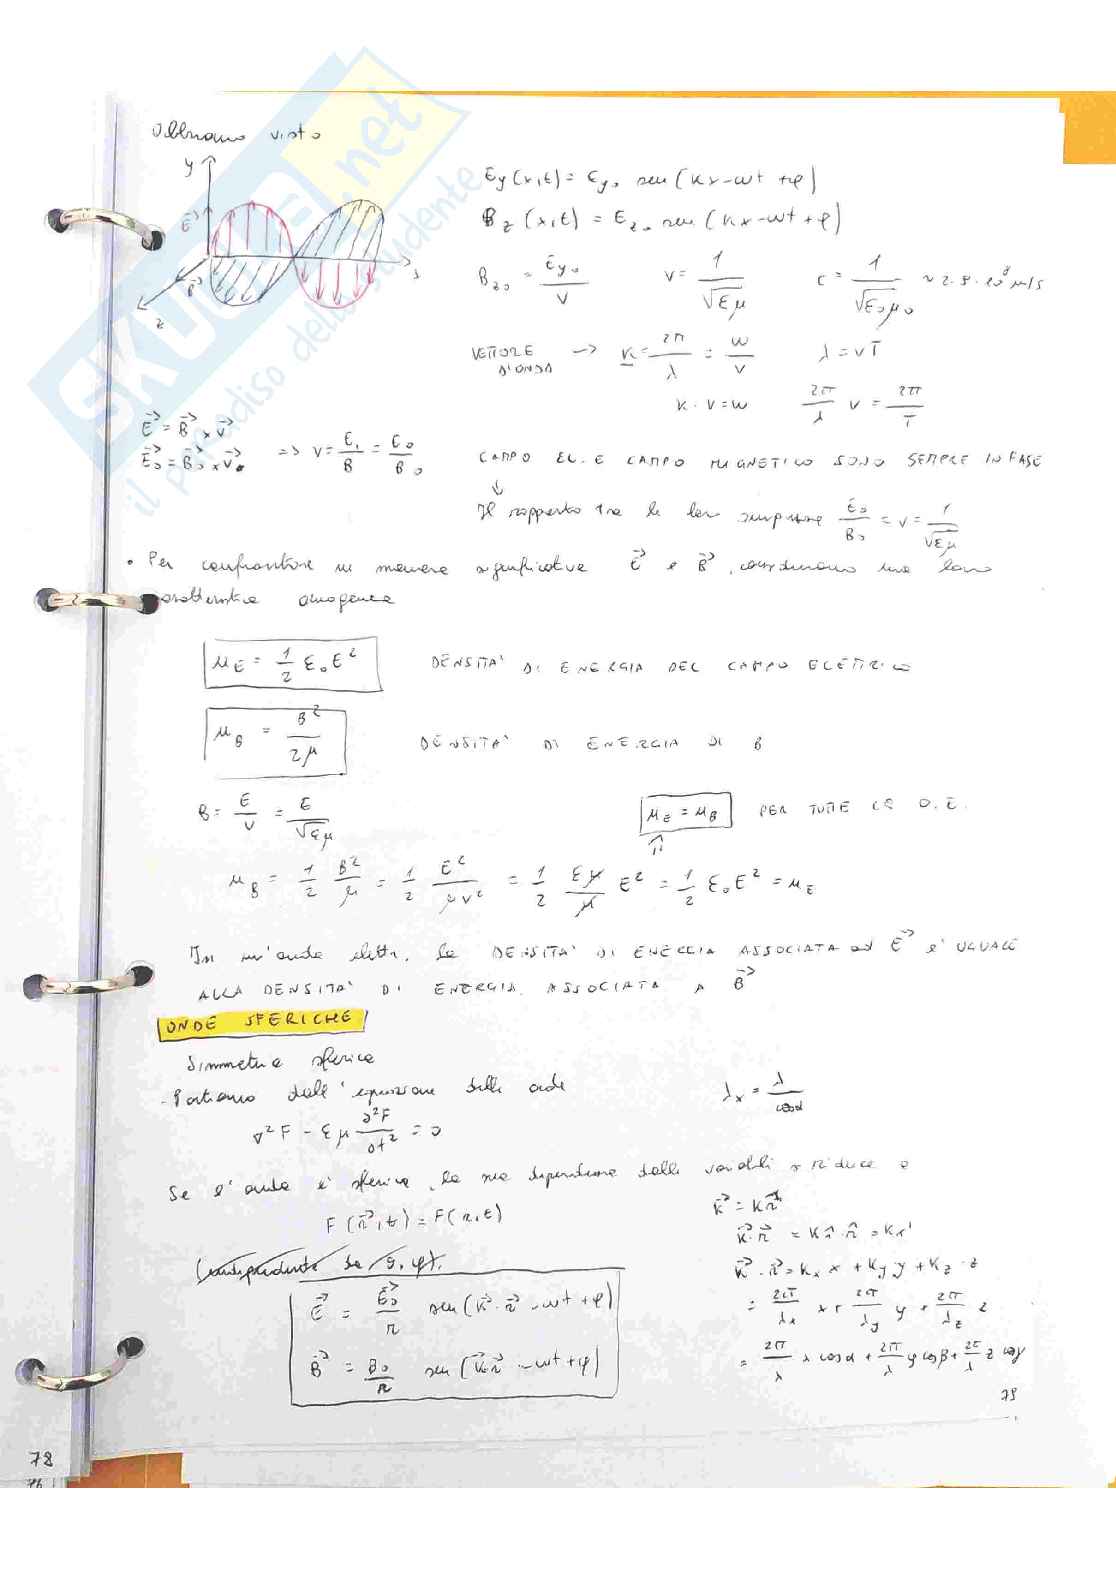 Abbiamo visto
y
E⃗
B⃗
x
z
Ey(x,t) = Ey₀ sen(kx-ωt+φ)
Bz(x,t) = Ez₀ sen(kx-ωt+φ)
Bz₀ = Ey₀/v    v = 1/√(εμ)    c = 1/√(ε₀μ₀) ~ 2.9·10⁸ m/s
VETTORE D'ONDA → k = 2π/λ = ω/v    λ = vT
k·v = ω    2π/λ v = 2π/T
E⃗ = B⃗ × v⃗
E⃗₀ = B⃗₀ × v⃗₀ => v = E/B = E₀/B₀
CAMPO EL. E CAMPO MAGNETICO SONO SEMPRE IN FASE
↓
Il rapporto tra le loro ampiezze E₀/B₀ = v = 1/√(εμ)
• Per confrontare in maniera significativa E⃗ e B⃗, consideriamo una loro
caratteristica omogenea
μE = 1/2 ε₀E²    DENSITA' DI ENERGIA DEL CAMPO ELETTRICO
μB = B²/2μ    DENSITA' DI ENERGIA DI B
B = E/v = E/√εμ    μE = μB PER TUTTE LE O.E.
⇑
μB = 1/2 B²/μ = 1/2 E²/μv² = 1/2 εμ/μ E² = 1/2 ε₀E² = μE
In un'onda elettr. la DENSITA' DI ENERGIA ASSOCIATA ad E⃗ e' UGUALE
ALLA DENSITA' DI ENERGIA ASSOCIATA A B⃗
ONDE SFERICHE
Simmetria sferica
- Partiamo dall'equazione delle onde    λx = λ/cosα
∇²F - εμ ∂²F/∂t² = 0
Se l'onda e' sferica, la sua dipendenza dalle variabili si riduce a
F(r⃗,t) = F(r,t)
k⃗ = kr̂
k⃗·r⃗ = kr̂·r̂ = kr
k⃗·r⃗ = kx x + ky y + kz z
= 2π/λx x + 2π/λy y + 2π/λz z
= 2π/λ x cosα + 2π/λ y cosβ + 2π/λ z cosγ
(indipendente da θ, φ).
E⃗ = E⃗₀/r sen(k⃗·r⃗ - ωt + φ)
B⃗ = B₀/r sen(k⃗·r⃗ - ωt + φ)
79
78
76
SKUOLA.net
il paradiso dello studente